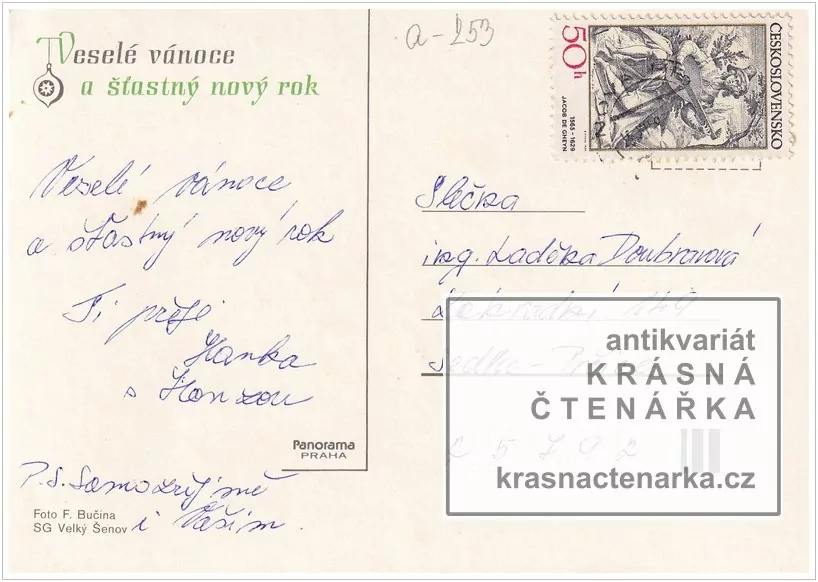 Veselé vánoce
a šťastný nový rok
a-253
ČESKOSLOVENSKO
50h
1565-1629
JACOB DE GHEYN
Veselé vánoce
a šťastný nový rok
Ti přeje
Hanka
s Honzou
P.S. Samozřejmě
i Vašim.
Panorama
PRAHA
Foto F. Bučina
SG Velký Šenov
Slečna
ing. Laděka Doubravová
149
antikvariát
KRÁSNÁ
ČTENÁŘKA
krasnactenarka.cz